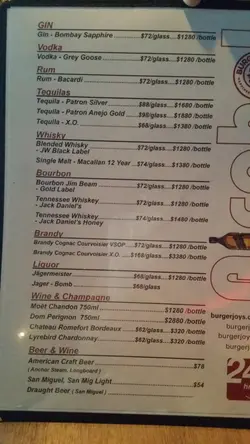 GIN
Gin - Bombay Sapphire $72/glass...$1280 /bottle
Vodka
Vodka - Grey Goose $72/glass...$1280 /bottle
Rum
Rum - Bacardi $72/glass...$1280 /bottle
Tequilas
Tequila - Patron Silver $88/glass...$1680 /bottle
Tequila - Patron Anejo Gold $98/glass...$1880 /bottle
Tequila - X.O. $68/glass...$1380 /bottle
Whisky
Blended Whisky
- JW Black Label $72/glass...$1280 /bottle
Single Malt - Macallan 12 Year $74/glass...$1380 /bottle
Bourbon
Bourbon Jim Beam
- Gold Label $72/glass...$1280 /bottle
Tennessee Whiskey
- Jack Daniel's $72/glass...$1280 /bottle
Tennessee Whiskey
- Jack Daniel's Honey $74/glass...$1480 /bottle
Brandy
Brandy Cognac Courvoisier VSOP $72/glass...$1280 /bottle
Brandy Cognac Courvoisier X.O. $168/glass...$3380 /bottle
Liquor
Jägermeister $68/glass...$1280 /bottle
Jager - Bomb $68/glass
Wine & Champagne
Moët Chandon 750ml $1280 /bottle
Dom Perignon 750ml $2880 /bottle
Chateau Romefort Bordeaux $62/glass...$320 /bottle
Lyrebird Chardonnay $62/glass...$320 /bottle
Beer & Wine
American Craft Beer $78
( Anchor Steam, Longboard )
San Miguel, San Mig Light $54
Draught Beer ( San Miguel )
burgerjoys.c
burgerjo
burgerj
24